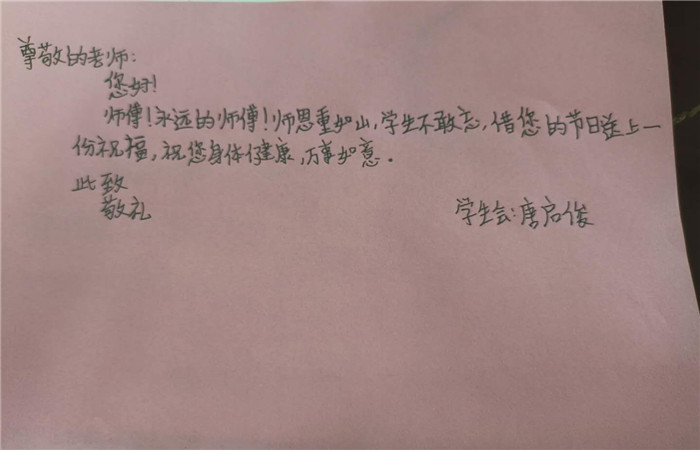 尊敬的老师:
您好!
师傅!永远的师傅!师恩重如山,学生不敢忘,借您的节日送上一
份祝福,祝您身体健康,万事如意.
此致
敬礼
学生会:唐启俊